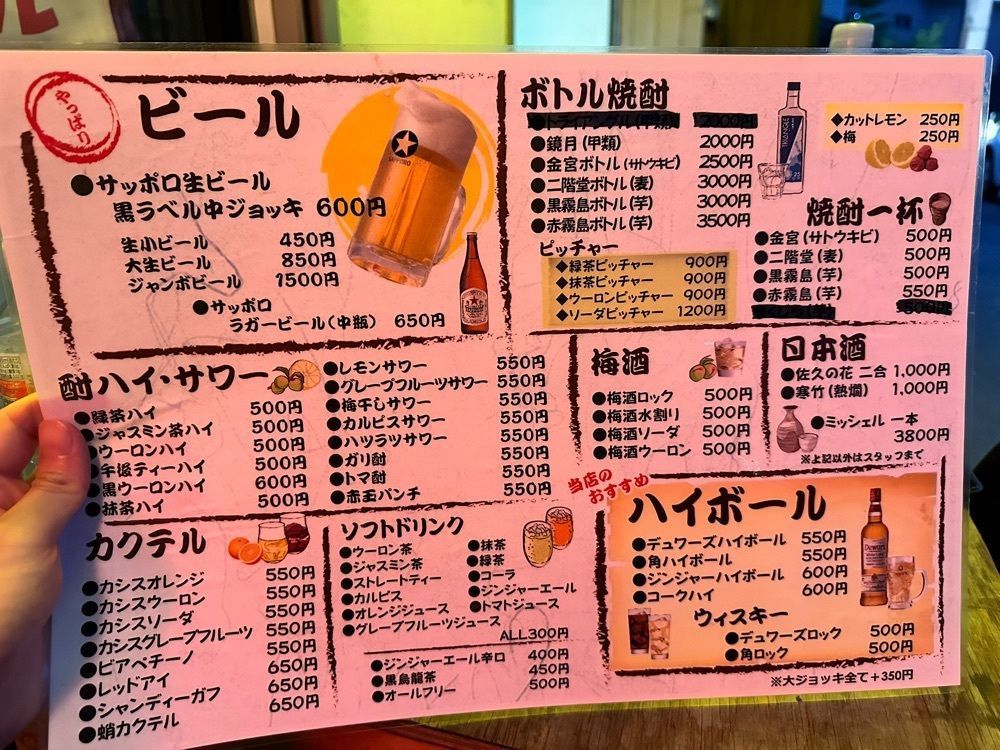 やっぱり
ビール
●サッポロ生ビール
黒ラベル中ジョッキ 600円
生小ビール 450円
大生ビール 850円
ジャンボビール 1500円
●サッポロ
ラガービール(中瓶) 650円
SAPPORO
ボトル焼酎
●トライアングル(甲類) 2000円
●鏡月(甲類) 2000円
●金宮ボトル(サトウキビ) 2500円
●二階堂ボトル(麦) 3000円
●黒霧島ボトル(芋) 3000円
●赤霧島ボトル(芋) 3500円
◆カットレモン 250円
◆梅 250円
ピッチャー
◆緑茶ピッチャー 900円
◆抹茶ピッチャー 900円
◆ウーロンピッチャー 900円
◆ソーダピッチャー 1200円
焼酎一杯
●金宮(サトウキビ) 500円
●二階堂(麦) 500円
●黒霧島(芋) 500円
●赤霧島(芋) 550円
酎ハイ・サワー
●緑茶ハイ 500円
●ジャスミン茶ハイ 500円
●ウーロンハイ 500円
●午後ティーハイ 500円
●黒ウーロンハイ 600円
●抹茶ハイ 500円
●レモンサワー 550円
●グレープフルーツサワー 550円
●梅干しサワー 550円
●カルピスサワー 550円
●ハツラツサワー 550円
●ガリ酎 550円
●トマ酎 550円
●赤玉パンチ 550円
梅酒
●梅酒ロック 500円
●梅酒水割り 500円
●梅酒ソーダ 500円
●梅酒ウーロン 500円
日本酒
●佐久の花 二合 1,000円
●寒竹(熱燗) 1,000円
●ミッシェル 一本
3800円
※上記以外はスタッフまで
カクテル
●カシスオレンジ 550円
●カシスウーロン 550円
●カシスソーダ 550円
●カシスグレープフルーツ 550円
●ビアペチーノ 550円
●レッドアイ 650円
●シャンディーガフ 650円
●蛸カクテル 650円
ソフトドリンク
●ウーロン茶
●ジャスミン茶
●ストレートティー
●カルピス
●オレンジジュース
●グレープフルーツジュース
●抹茶
●緑茶
●コーラ
●ジンジャーエール
●トマトジュース
ALL300円
●ジンジャーエール辛口 400円
●黒烏龍茶 450円
●オールフリー 500円
当店の
おすすめ
ハイボール
●デュワーズハイボール 550円
●角ハイボール 550円
●ジンジャーハイボール 600円
●コークハイ 600円
Dewar's
ウィスキー
●デュワーズロック 500円
●角ロック 500円
※大ジョッキ全て+350円